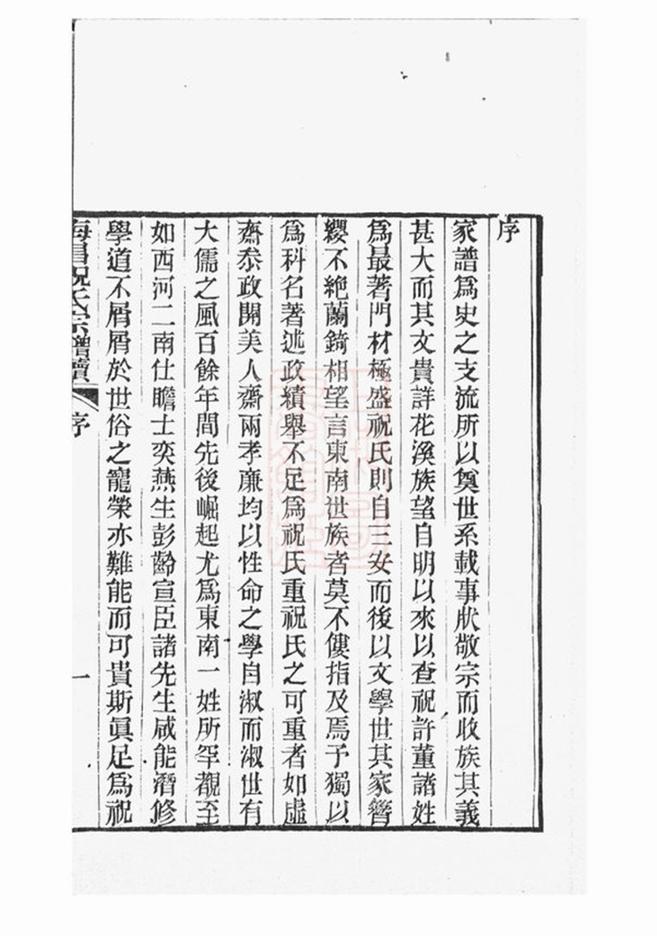 序
家譜爲史之支流所以奠世系載事狀敬宗而收族其義
甚大而其文貴詳花溪族望自明以來以查祝許董諸姓
爲最著門材極盛祝氏則自三安而後以文學世其家簪
纓不絶蘭錡相望言東南世族者莫不僂指及焉予獨以
爲科名著述政績舉不足爲祝氏重祝氏之可重者如虛
齋叅政開美人齋兩孝廉均以性命之學自淑而淑世有
大儒之風百餘年間先後崛起尤爲東南一姓所罕覯至
如西河二南仕瞻士奕燕生彭齡宣臣諸先生咸能潛修
學道不屑屑於世俗之寵榮亦難能而可貴斯眞足爲祝
海昌祝氏宗譜續
序
一